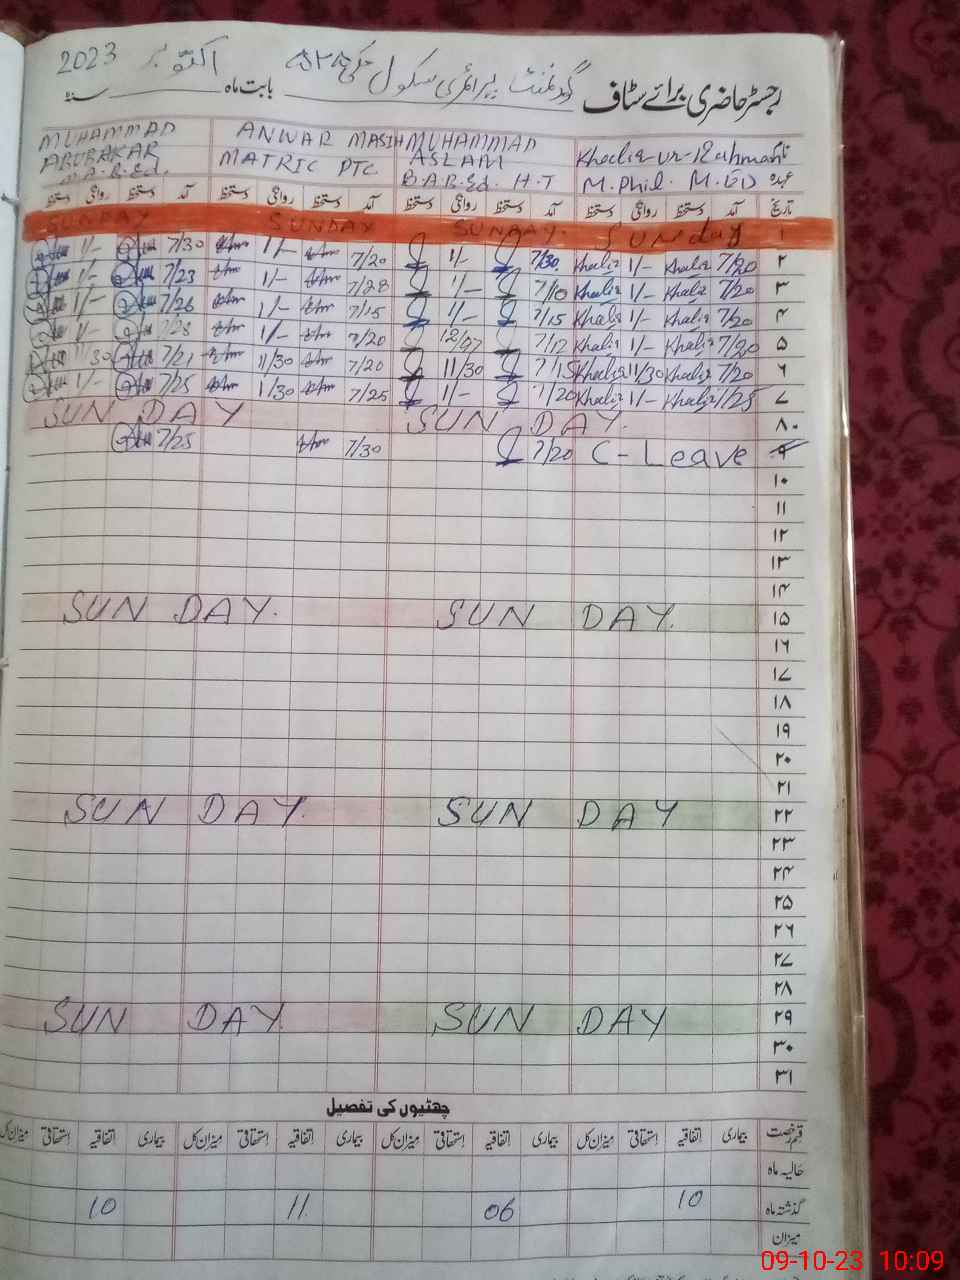 رجسٹر حاضری برائے سٹاف گورنمنٹ پرائمری سکول چک بابت ماہ اکتوبر سنہ 2023
Khaliq-ur-Rahman MUHAMMAD ASLAM ANWAR MASIH MUHAMMAD ABUBAKAR
عہدہ M.Phil. M.ED B.A B.Ed. H.T MATRIC PTC. B.Ed.
تاریخ آمد دستخط روانگی دستخط آمد دستخط روانگی دستخط آمد دستخط روانگی دستخط آمد دستخط روانگی دستخط
۱ SUNday SUNDAY. SUNDAY SUNDAY
۲ 7/20 Khaliq 1/- Khaliq 7/30 1/- 7/20 1/- 7/30 1/-
۳ 7/20 Khaliq 1/- Khaliq 7/10 1/- 7/28 1/- 7/23 1/-
۴ 7/20 Khaliq 1/- Khaliq 7/15 1/- 7/15 1/- 7/26 1/-
۵ 7/20 Khaliq 1/- Khaliq 7/12 7/20 1/- 1/-
۶ 7/20 Khaliq 11/30 Khaliq 7/15 11/30 7/20 11/30 7/21
۷ 7/25 Khaliq 1/- Khaliq 7/20 1/- 7/25 1/30 7/25 1/-
۸ SUN DAY. SUN DAY
۹ C-Leave 7/20 7/30 7/25
۱۰
۱۱
۱۲
۱۳
۱۴
۱۵ SUN DAY. SUN DAY.
۱۶
۱۷
۱۸
۱۹
۲۰
۲۱
۲۲ SUN DAY SUN DAY.
۲۳
۲۴
۲۵
۲۶
۲۷
۲۸
۲۹ SUN DAY SUN DAY
۳۰
۳۱
چھٹیوں کی تفصیل
قسم رخصت بیماری اتفاقیہ استحقاقی میزان کل بیماری اتفاقیہ استحقاقی میزان کل بیماری اتفاقیہ استحقاقی میزان کل بیماری اتفاقیہ استحقاقی میزان کل
حالیہ ماہ
گذشتہ ماہ 10 06 11 10
میزان
09-10-23 10:09